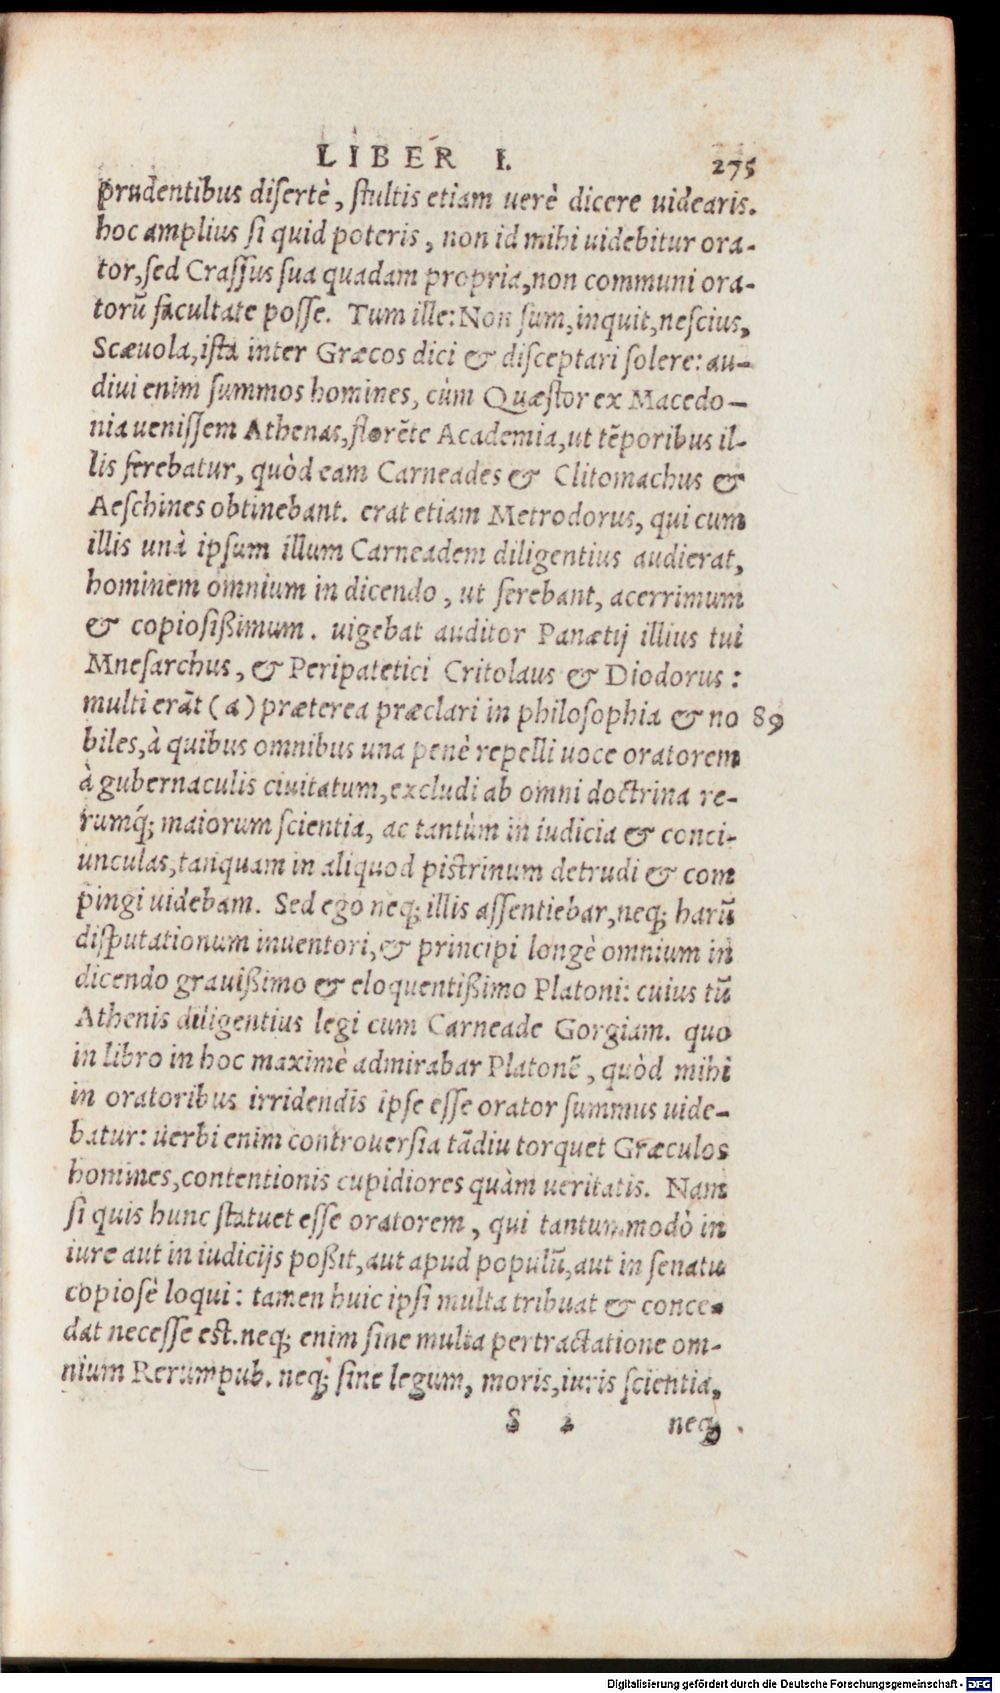 LIBER I. 275
prudentibus disertè, stultis etiam uerè dicere uidearis.
hoc amplius si quid poteris, non id mihi uidebitur ora-
tor, sed Crassus sua quadam propria, non communi ora-
torũ facultate posse. Tum ille: Non sum, inquit, nescius,
Scæuola, ista inter Græcos dici & disceptari solere: au-
diui enim summos homines, cùm Quæstor ex Macedo-
nia uenissem Athenas, florẽte Academia, ut tẽporibus il-
lis ferebatur, quòd eam Carneades & Clitomachus &
Aeschines obtinebant. erat etiam Metrodorus, qui cum
illis unà ipsum illum Carneadem diligentius audierat,
hominem omnium in dicendo, ut ferebant, acerrimum
& copiosißimum. uigebat auditor Panætij illius tui
Mnesarchus, & Peripatetici Critolaus & Diodorus:
multi erãt (a) præterea præclari in philosophia & no 89
biles, à quibus omnibus una penè repelli uoce oratorem
à gubernaculis ciuitatum, excludi ab omni doctrina re-
rumq́; maiorum scientia, ac tantùm in iudicia & conci-
unculas, tanquam in aliquod pistrinum detrudi & com
pingi uidebam. Sed ego neq; illis assentiebar, neq; harũ
disputationum inuentori, & principi longè omnium in
dicendo grauißimo & eloquentißimo Platoni: cuius tũ
Athenis diligentius legi cum Carneade Gorgiam. quo
in libro in hoc maximè admirabar Platonẽ, quòd mihi
in oratoribus irridendis ipse esse orator summus uide-
batur: uerbi enim controuersia tãdiu torquet Græculos
homines, contentionis cupidiores quàm ueritatis. Nam
si quis hunc statuet esse oratorem, qui tantummodò in
iure aut in iudicijs poßit, aut apud populũ, aut in senatu
copiosè loqui: tamen huic ipsi multa tribuat & conce-
dat necesse est. neq; enim sine multa pertractatione om-
nium Rerumpub. neq; sine legum, moris, iuris scientia,
S 2 neq;
Digitalisierung gefördert durch die Deutsche Forschungsgemeinschaft - DFG